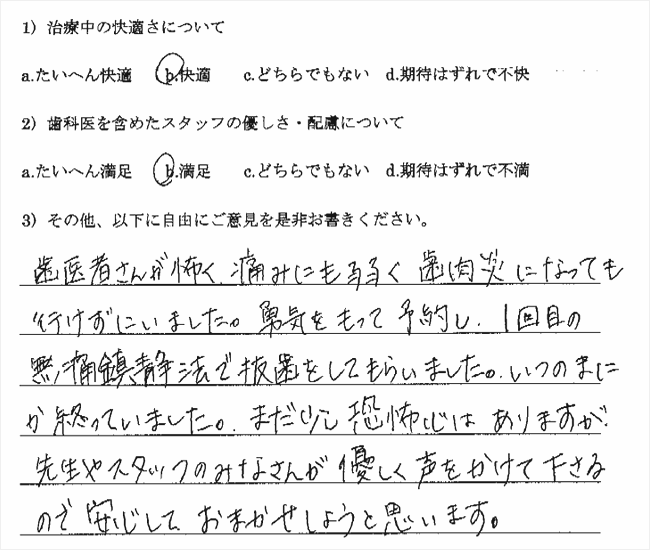 1）治療中の快適さについて
a.たいへん快適 b.快適 c.どちらでもない d.期待はずれで不快
2）歯科医を含めたスタッフの優しさ・配慮について
a.たいへん満足 b.満足 c.どちらでもない d.期待はずれで不満
3）その他、以下に自由にご意見を是非お書きください。
歯医者さんが怖く、痛みにも弱く 歯肉炎になっても
行けずにいました。勇気をもって予約し、1回目の
無痛鎮静法で抜歯をしてもらいました。いつのまに
か終っていました。まだ少し恐怖心はありますが、
先生やスタッフのみなさんが優しく声をかけて下さる
ので安心して おまかせしようと思います。